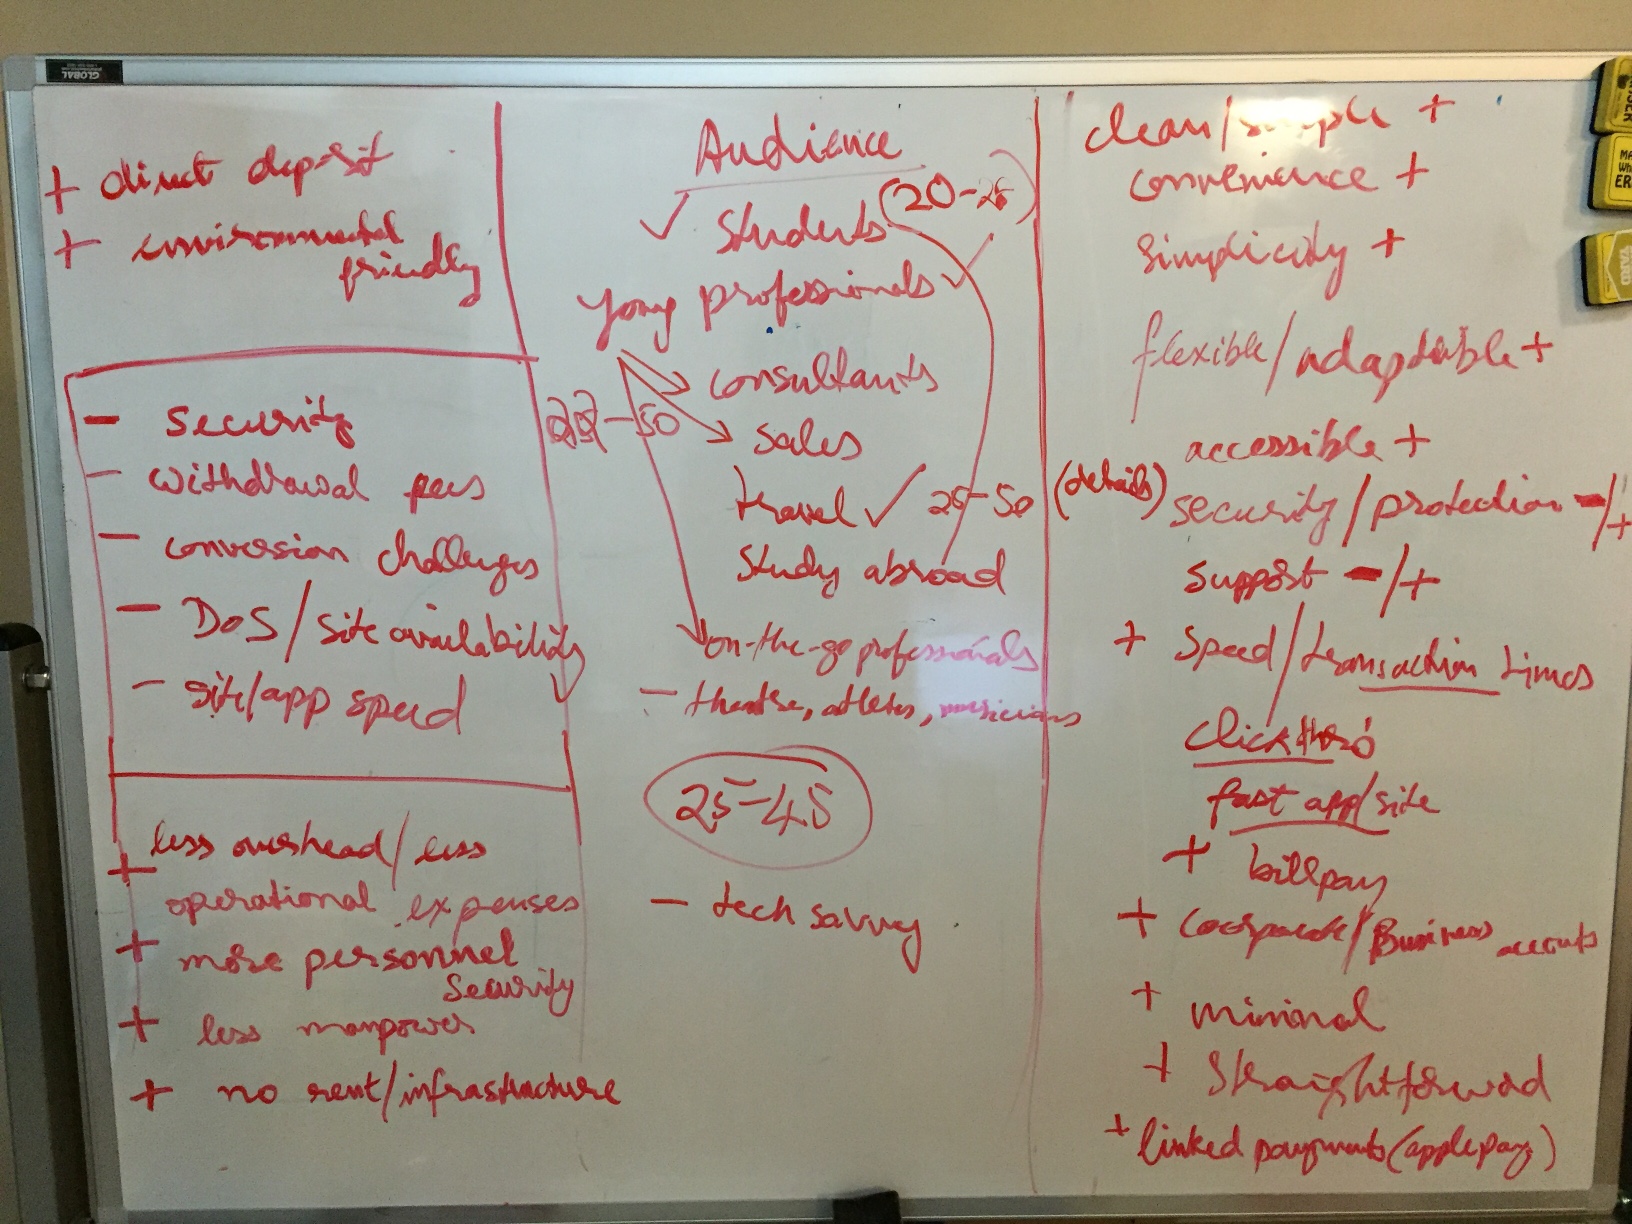 GLOBAL
+ direct deposit
+ environmental
friendly
- security
- withdrawal pees
- conversion challenges
- DoS/site availability
- site/app speed
+ less overhead/less
operational expenses
+ more personnel
security
+ less manpower
+ no rent/infrastructure
Audience
✓ students (20-26)
young professionals ✓
consultants
-50
sales
travel ✓ 25-50
study abroad
on-the-go professionals
- theatre, athletes, musicians
25-45
- tech savvy
clean/simple +
convenience +
simplicity +
flexible/adaptable +
accessible +
(details) security/protection -/+
support -/+
+ speed/transaction times
click thro
fast app/site
+ billpay
+ corporate/Business accounts
+ minimal
+ straightforward
+ linked payments (applepay)